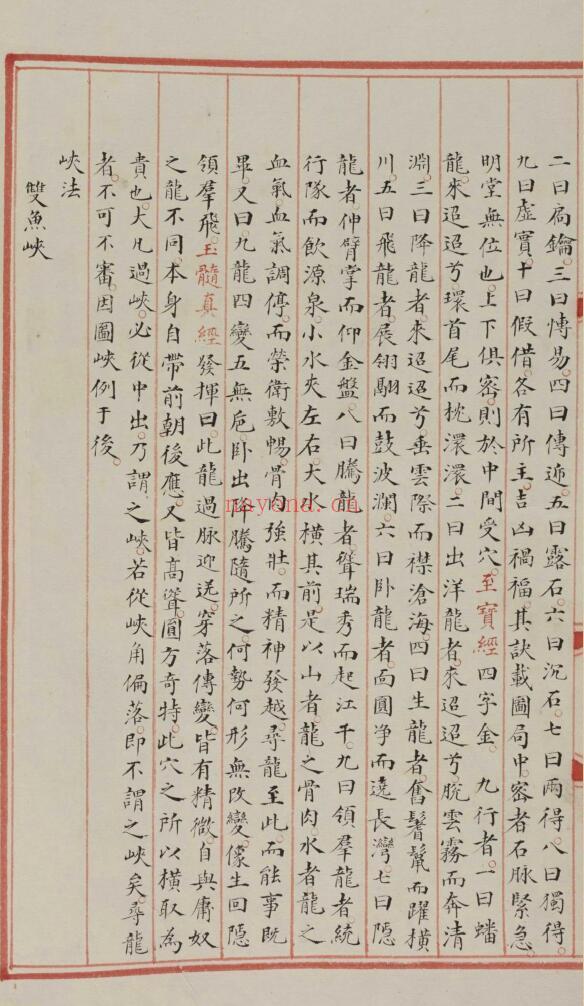 二曰扃鑰。三曰慱易。四曰傳逓。五曰露石。六曰沉石。七曰兩得。八曰獨得。
九曰虛實。十曰假借。各有所主。吉凶禍福。其訣載圖局中。密者石脉緊急。
明堂無位也。上下俱密。則於中間受穴。至寶經四字金。九行者。一曰蟠
龍。來迢迢兮。環首尾而枕澴澴。二曰出洋龍者。來迢迢兮。脫雲霧而奔清
淵。三曰降龍者。來迢迢兮。垂雲際而襟滄海。四曰生龍者。奮鬐鬣而躍橫
川。五曰飛龍者。展翎翮而鼓波瀾。六曰卧龍者。面圓净而遶長灣。七曰隱
龍者。伸臂掌而仰金盤。八曰騰龍者。聳瑞秀而起江干。九曰領羣龍者。統
行隊而飲源泉。小水夾左右。大水橫其前。是以山者。龍之骨肉。水者。龍之
血氣。血氣調停。而榮衛敷暢。骨肉強壯。而精神發越。尋龍至此。而能事旣
畢。又曰。九龍四變五無扈。卧出降騰隨所之。何勢何形無改變。像生回隱
領羣飛。玉髓真經發揮曰。此龍過脉迎送。穿落傳變。皆有精微。自與庸奴
之龍不同。本身自帶前朝後應。又皆高聳。圓方奇特。此穴之所以橫取為
貴也。大凡過峽。必從中出。乃謂之峽。若從峽角偏落。即不謂之峽矣。尋龍
者。不可不審。因圖峽例于後。
峽法
雙魚峽
nayona.cn